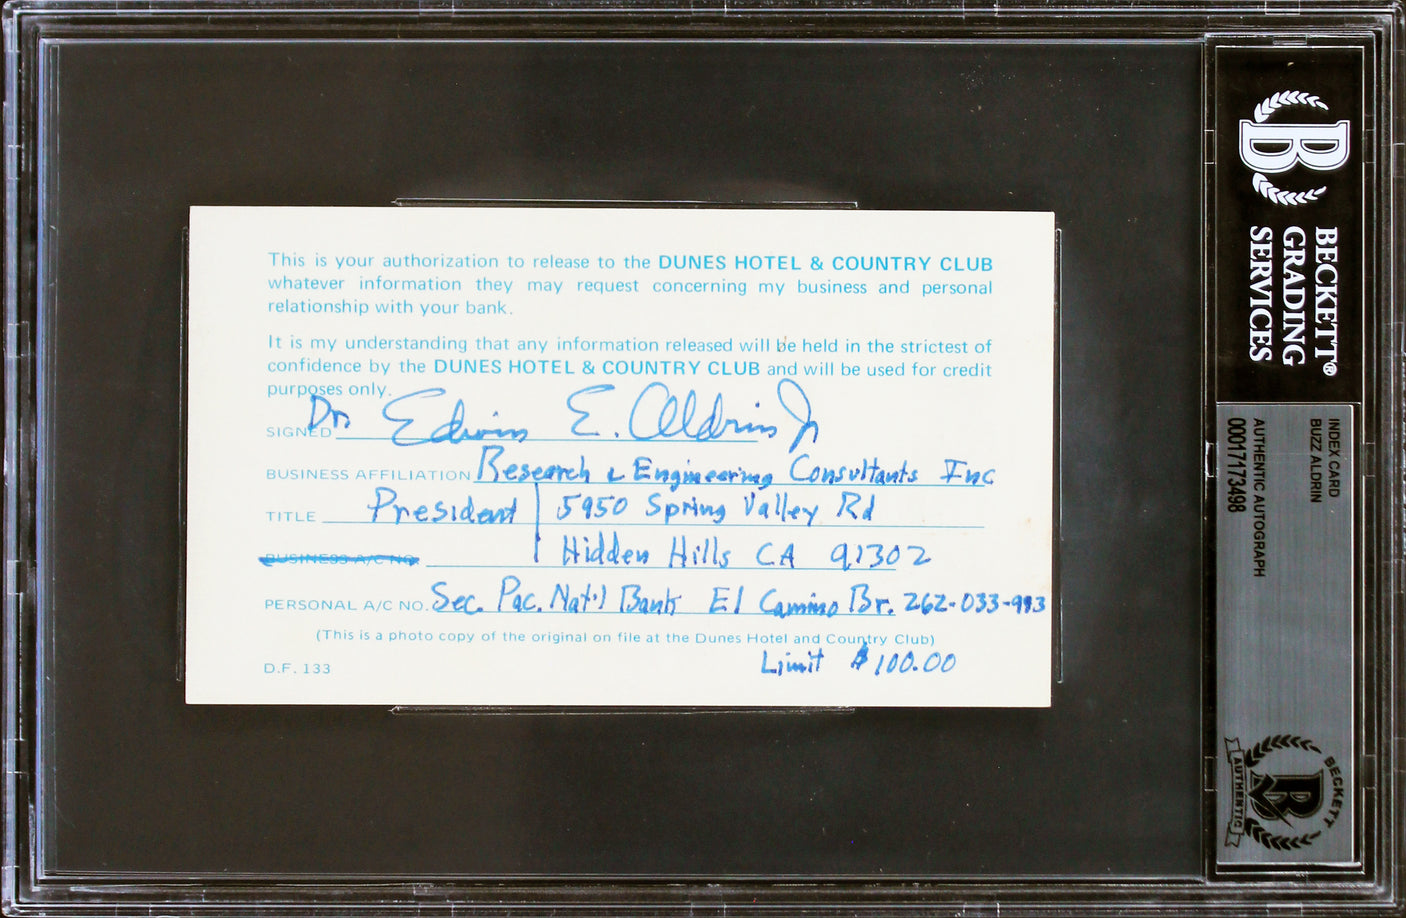 This is your authorization to release to the DUNES HOTEL & COUNTRY CLUB
whatever information they may request concerning my business and personal
relationship with your bank.
It is my understanding that any information released will be held in the strictest of
confidence by the DUNES HOTEL & COUNTRY CLUB and will be used for credit
purposes only.
SIGNED Dr. Edwin E. Aldrin Jr
BUSINESS AFFILIATION Research & Engineering Consultants Inc
TITLE President 5950 Spring Valley Rd
BUSINESS A/C NO. Hidden Hills CA 91302
PERSONAL A/C NO. Sec. Pac. Nat'l Bank El Camino Br. 262-033-993
(This is a photo copy of the original on file at the Dunes Hotel and Country Club)
D.F. 133 Limit $100.00
B
BECKETT®
GRADING
SERVICES
INDEX CARD
BUZZ ALDRIN
AUTHENTIC AUTOGRAPH
00017173498
BECKETT
B
AUTHENTIC